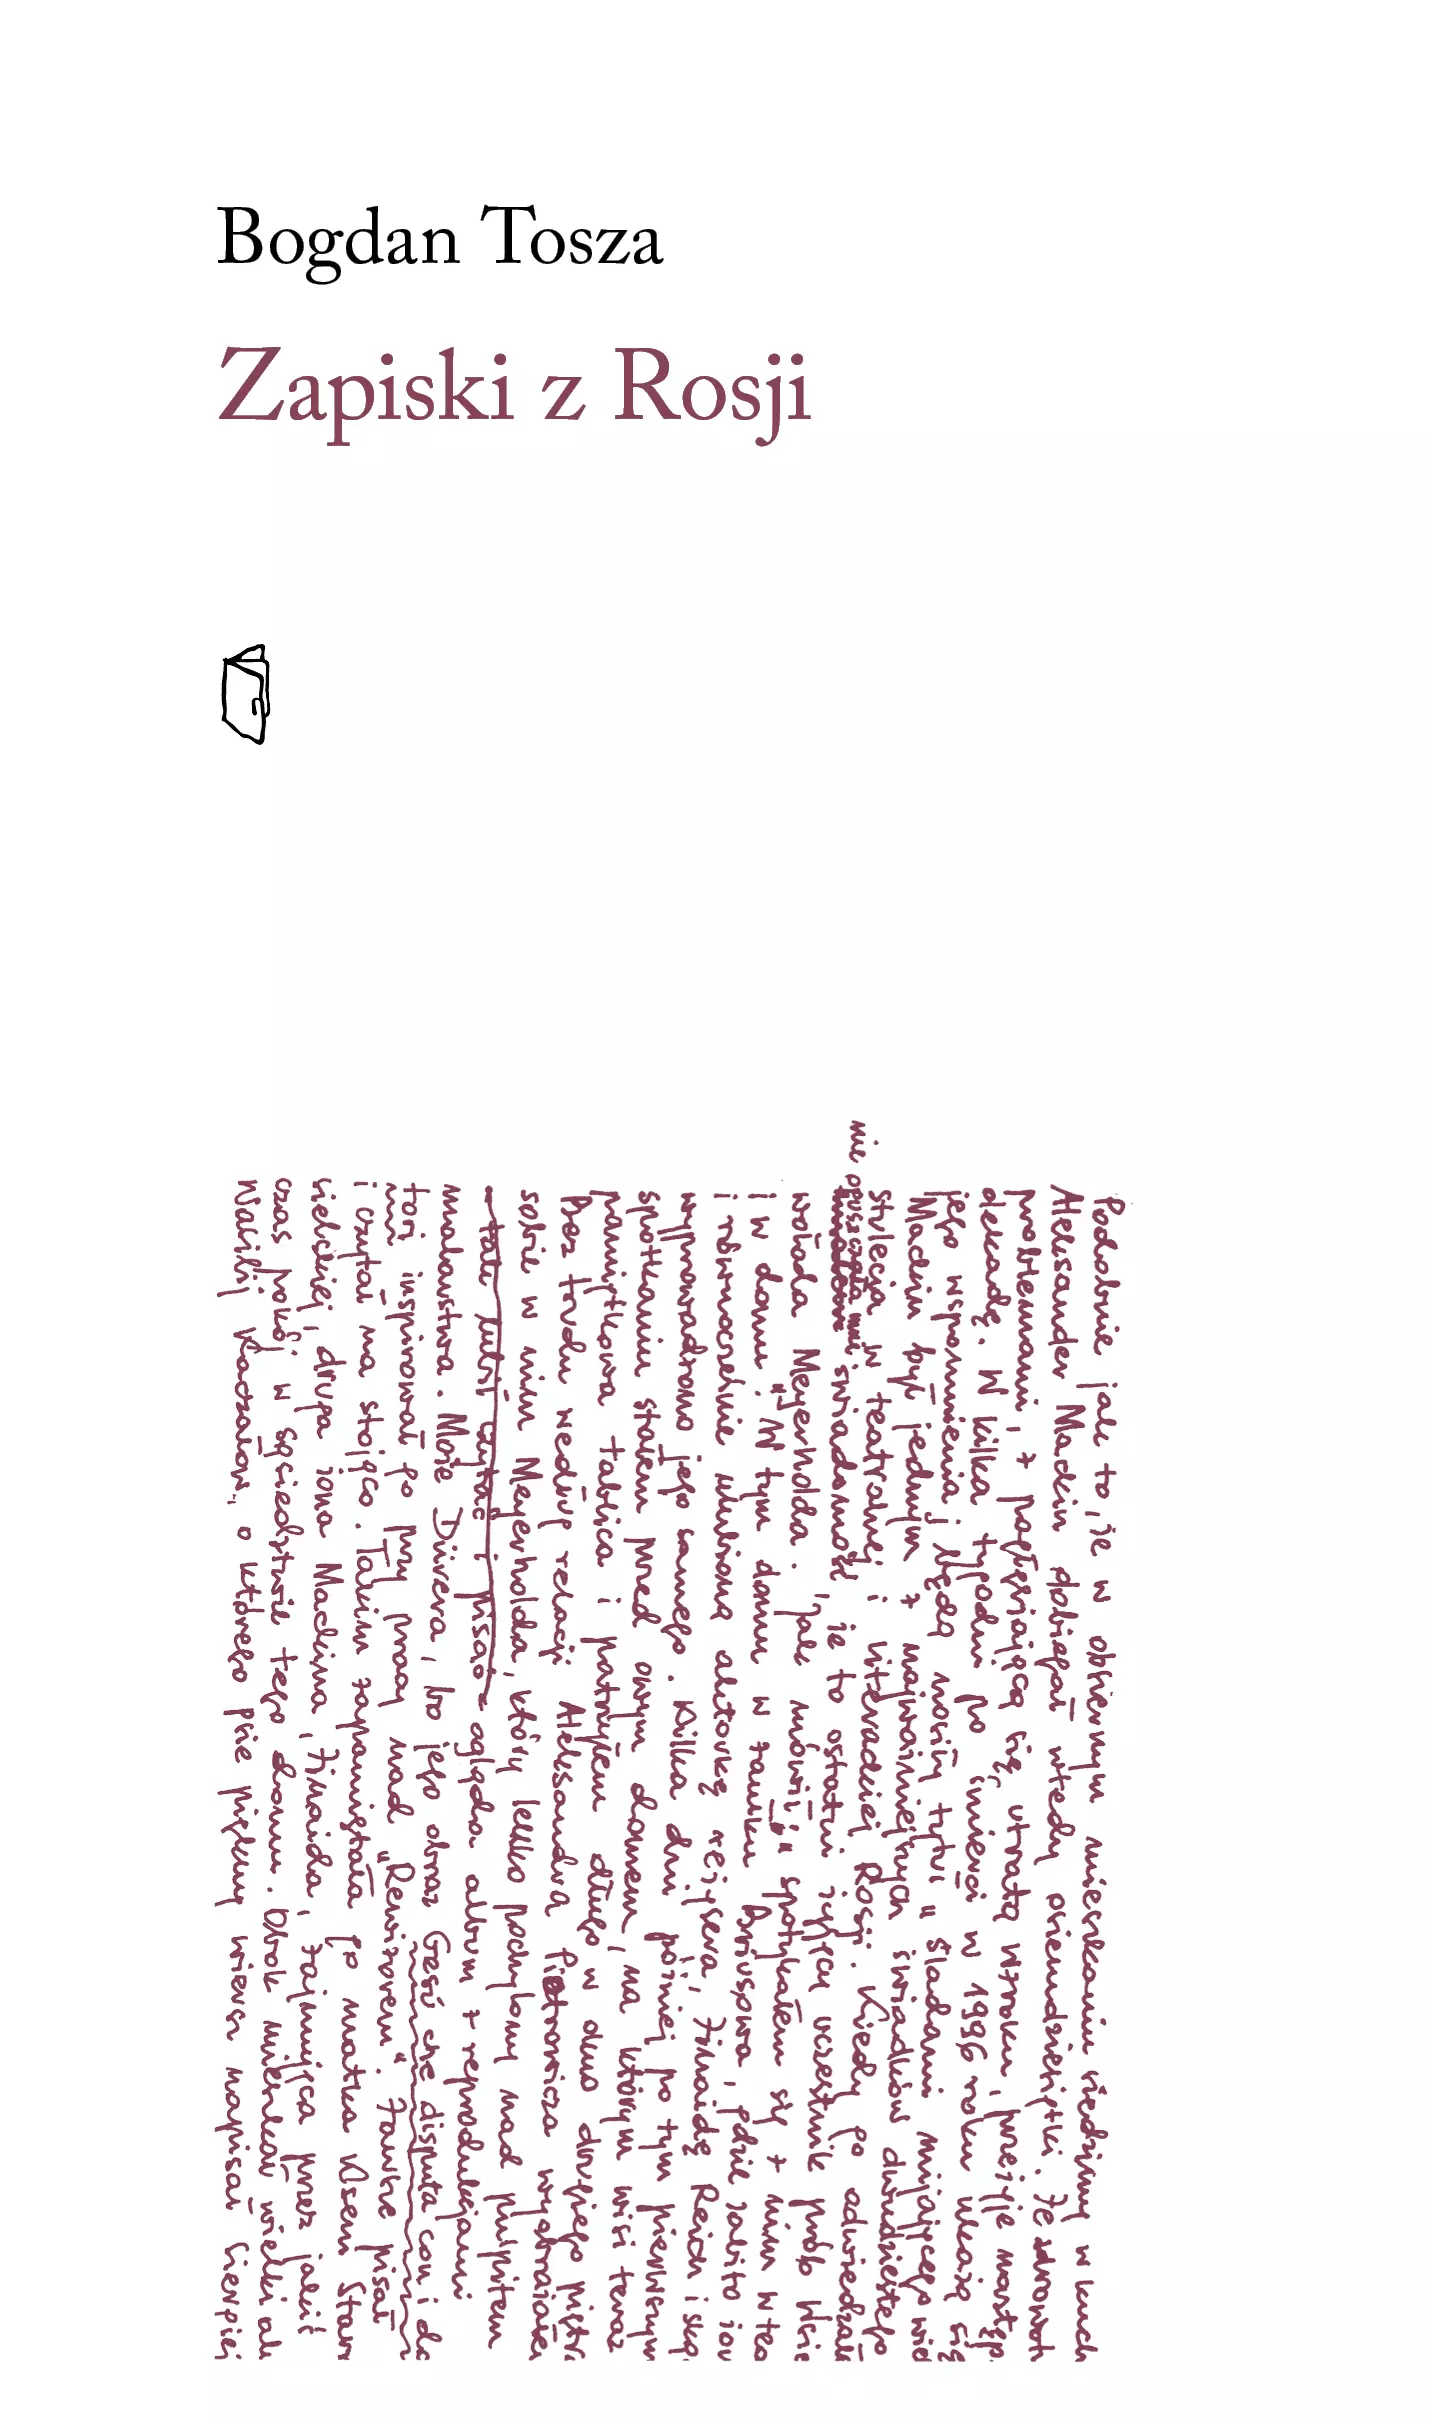 Bogdan Tosza
Zapiski z Rosji
Podobnie jak to, że w obszernym mieszkaniu siedzimy w kuch
Aleksander Mackin dobiegał wtedy osiemdziesiątki. Ze zdrowot
problemami, z pogłębiającą się utratą wzroku, przeżyje następ
dekadę. W kilka tygodni po śmierci w 1996 roku ukażą się
jego wspomnienia i będą nosiły tytuł "Śladami mijającego wie
Mackin był jednym z najważniejszych świadków dwudziestego
stulecia w teatralnej i literackiej Rosji. Kiedy go odwiedzał
nie opuszczała mnie świadomość, że to ostatni żyjący uczestnik prób Wsie
wołoda Meyerholda. "Jak mówił" spotykałem się z nim w tea
i w domu. W tym domu w zaułku Briusowa, gdzie zabito żon
i równocześnie ulubioną aktorkę reżysera, Zinaidę Reich i ską
wyprowadzono jego samego. Kilka dni później po tym pierwszym
spotkaniu stałem przed owym domem, na którym wisi teraz
pamiątkowa tablica i patrzyłem długo w okno drugiego piętr
Bez trudu według relacji Aleksandra Pietrowicza wyobraziłem
sobie w nim Meyerholda, który lekko pochylony nad pulpitem
– tak lubił czytać i pisać – ogląda album z reprodukcjami
malarstwa. Może Dürera, bo jego obraz Gesù che disputa con i do
tori inspirował go przy pracy nad "Rewizorem". Zawsze pisał
i czytał na stojąco. Takim zapamiętała go matka Kseni Stan
sielskiej, druga żona Mackina, Zinaida, zajmująca przez jakiś
czas pokój w sąsiedztwie tego domu. Obok mieszkał wielki ak
Wasilij Kaczałow, o którego psie piękny wiersz napisał Siergiej